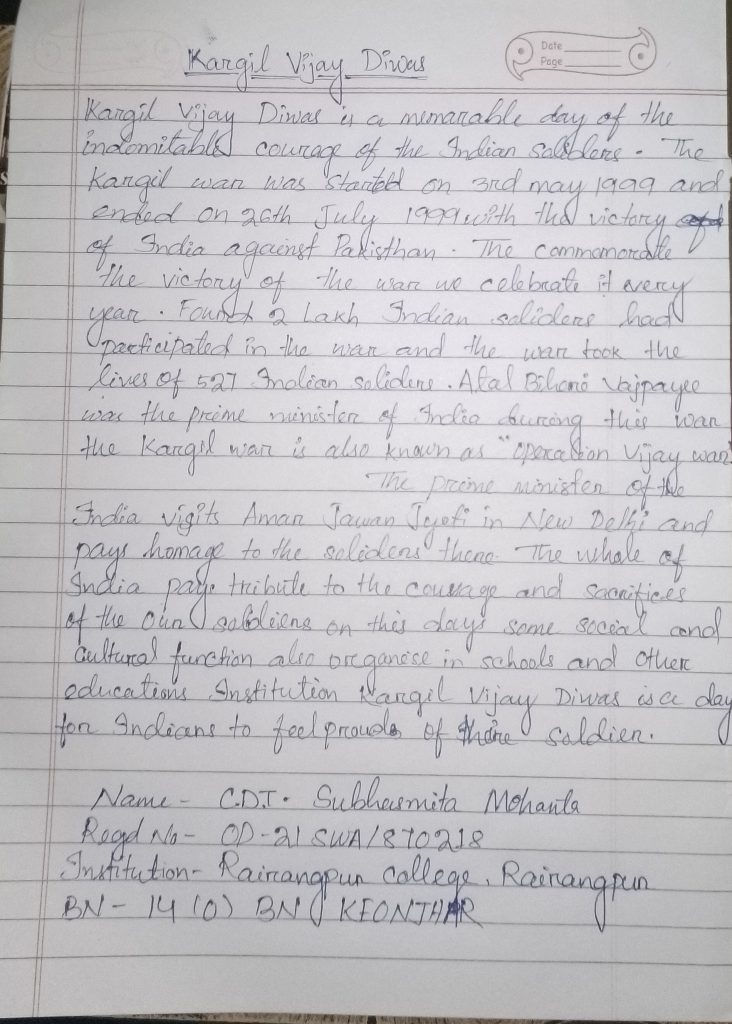 Kargil Vijay Diwas
Date
Page
Kargil Vijay Diwas is a memorable day of the
indomitable courage of the Indian soliders. The
Kargil war was started on 3rd may 1999 and
ended on 26th July 1999 with the victory of
of India against Pakisthan. The commomorate
the victory of the war we celebrate it every
year. Found 2 Lakh Indian soliders had
participated in the war and the war took the
lives of 527 Indian soliders. Atal Bihari Vajpayee
was the prime minister of India during this war
the Kargil war is also known as "operation Vijay war
The prime minister of the
India vigits Amar Jawan Jyoti in New Delhi and
pays homage to the soliders there. The whole of
India pays tribute to the courage and sacrifices
of the our soldiers on this days some social and
cultural function also organise in schools and other
educations Institution Kargil Vijay Diwas is a day
for Indians to feel prouds of there soldier.
Name - C.D.T. Subhasmita Mohanta
Regd No - OD-21 SWA/870218
Institution - Rairangpur college, Rairangpur
BN - 14 (O) BN KEONJHAR